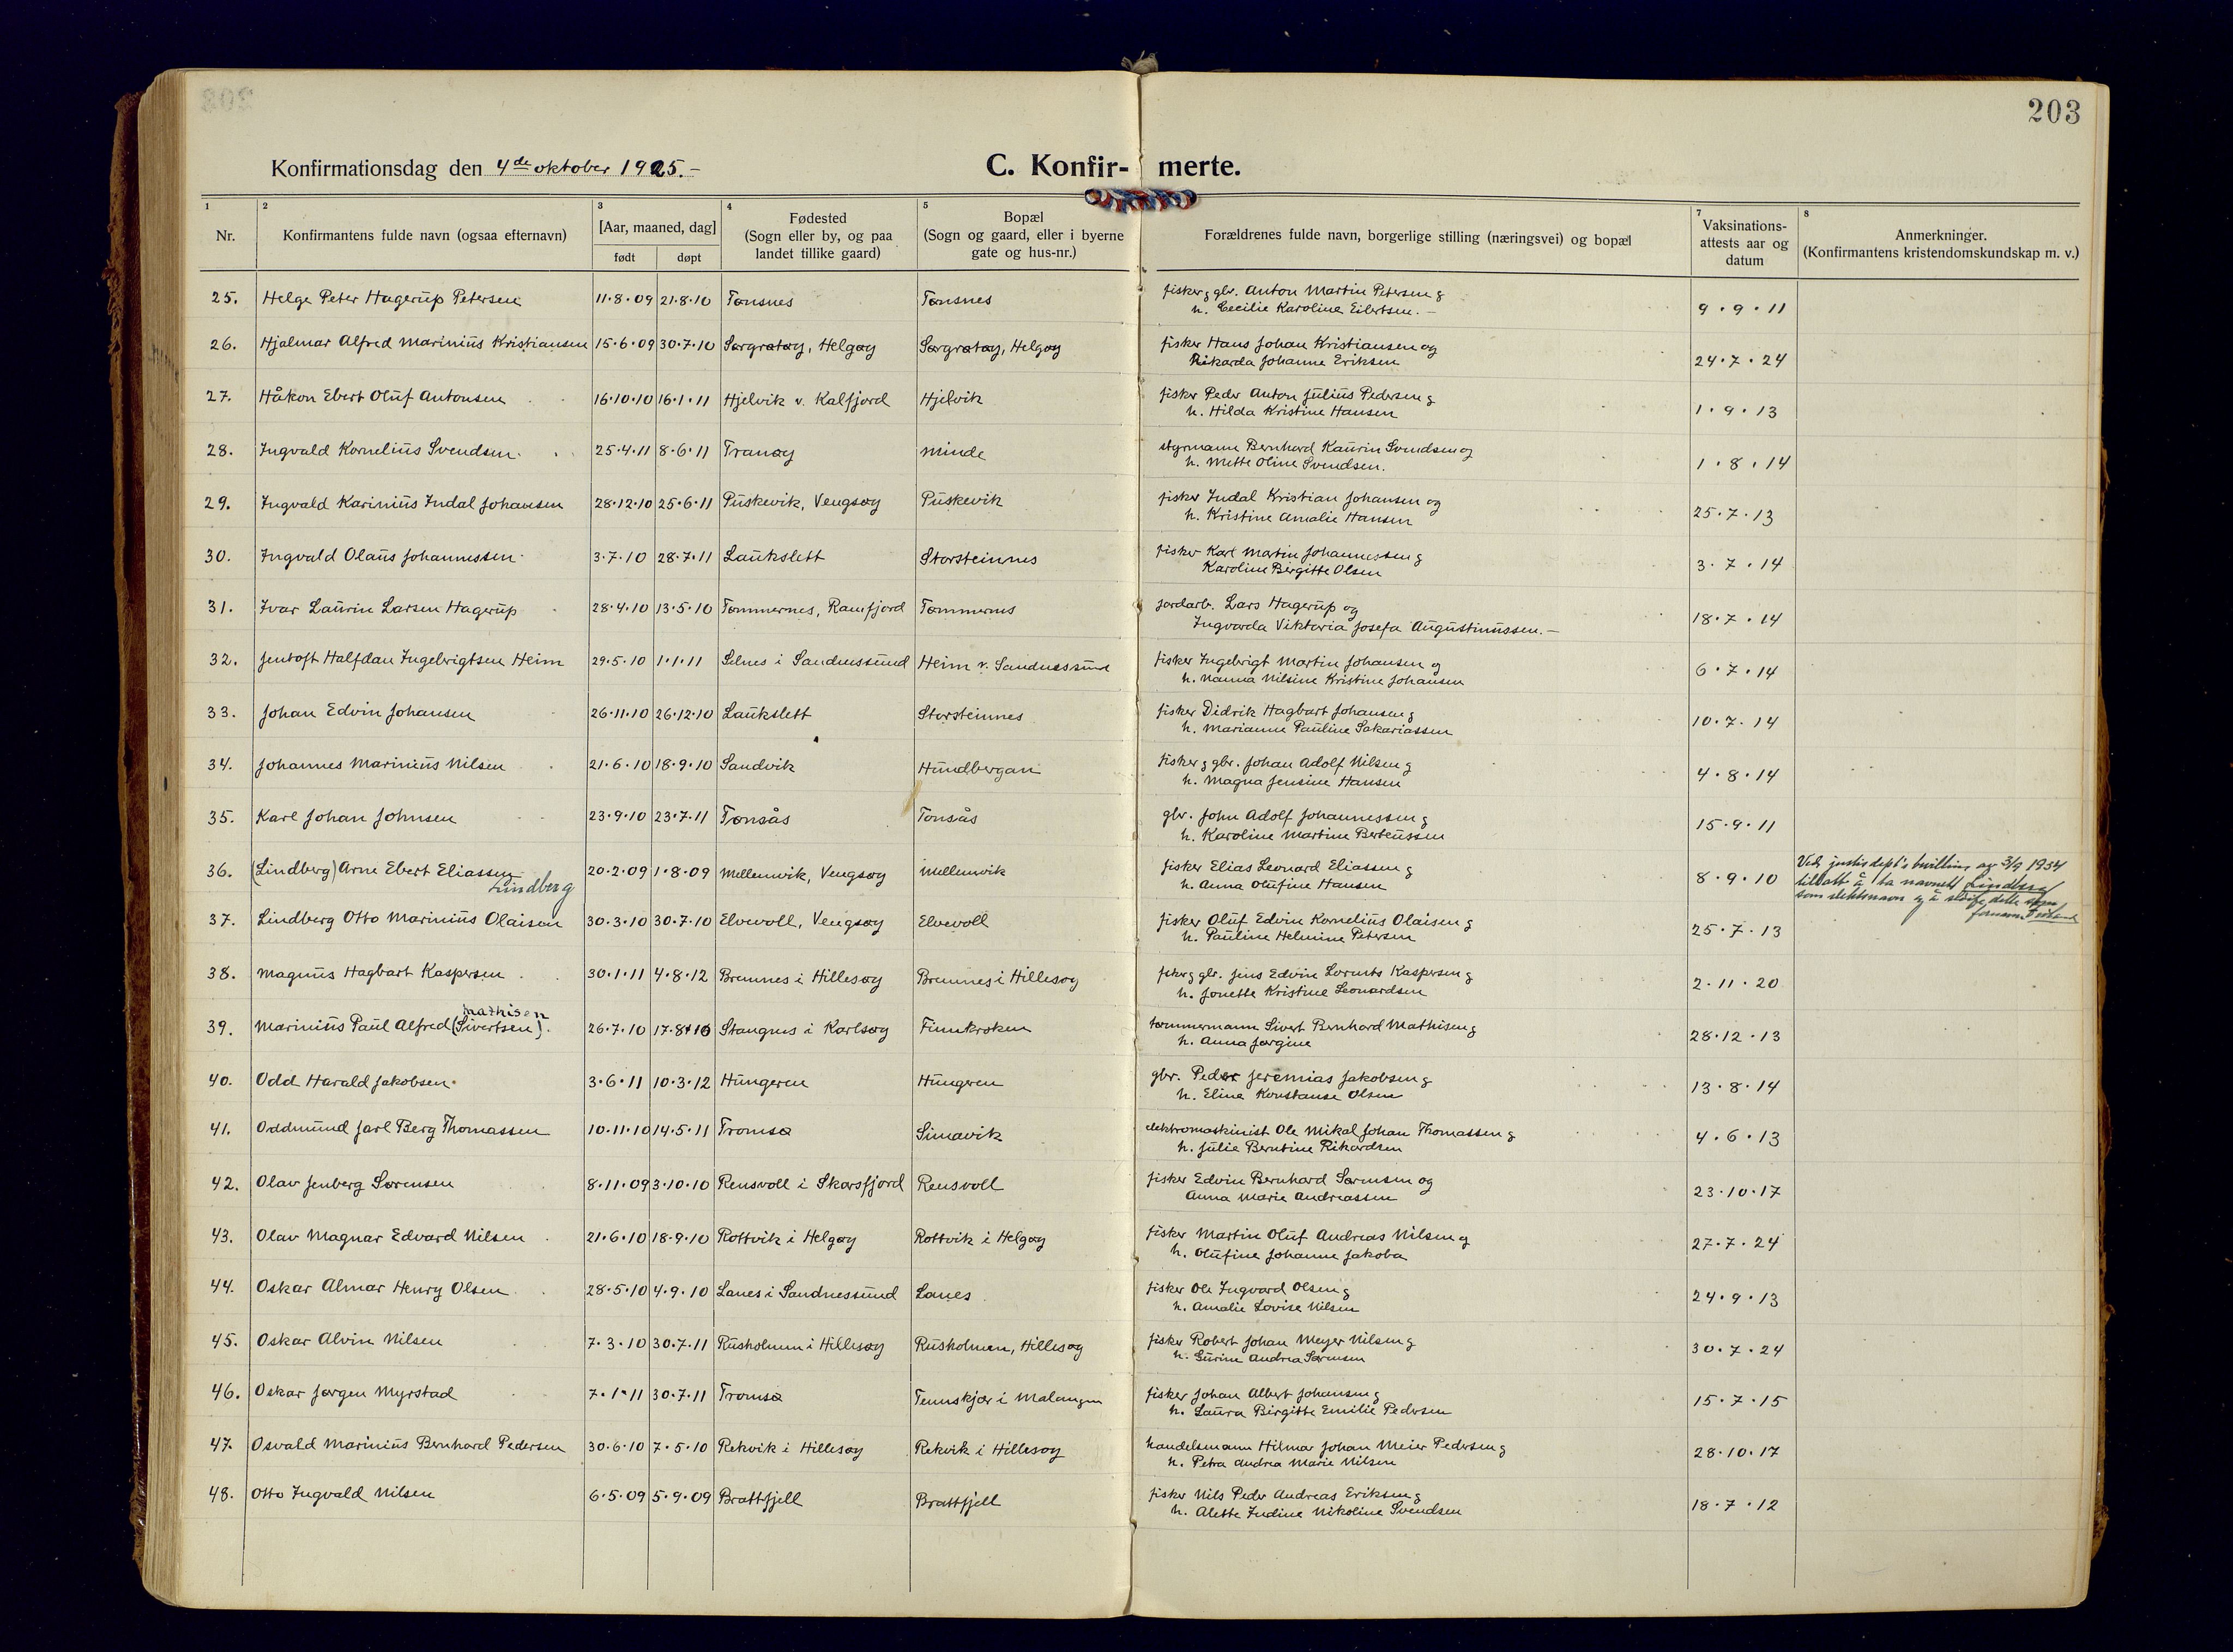 203
Konfirmationsdag den 4de oktober 1925.-
C. Konfir- merte.
1 2 3 4 5 7 8
Nr. Konfirmantens fulde navn (ogsaa efternavn) [Aar, maaned, dag] født døpt Fødested (Sogn eller by, og paa landet tillike gaard) Bopæl (Sogn og gaard, eller i byerne gate og hus-nr.) Forældrenes fulde navn, borgerlige stilling (næringsvei) og bopæl Vaksinations-attests aar og datum Anmerkninger. (Konfirmantens kristendomskundskap m. v.)
25. Helge Peter Hagerup Petersen 11.8.09 21.8.10 Tønsnes Tønsnes fisker g gbr. Anton Martin Petersen g
h. Cecilie Karoline Eilertsen.- 9.9.11
26. Hjalmar Alfred Marinius Kristiansen 15.6.09 30.7.10 Sørgrøtøy, Helgøy Sørgrøtøy, Helgøy fisker Hans Johan Kristiansen og
Rikarda Johanne Eriksen 24.7.24
27. Håkon Ebert Oluf Antonsen 16.10.10 16.1.11 Hjelvik v. Kalfjord Hjelvik fisker Peder Anton Julius Pedersen g
h. Hilda Kristine Hansen 1.9.13
28. Ingvald Kornelius Svendsen. 25.4.11 8.6.11 Tranøy Minde styrmann Bernhard Kaurin Svendsen og
h. Mette Oline Svendsen. 1.8.14
29. Ingvald Karinius Indal Johansen 28.12.10 25.6.11 Puskevik, Vengsøy Puskevik fisker Indal Kristian Johansen og
h. Kristine Amalie Hansen 25.7.13
30. Ingvald Olaus Johannessen. 3.7.10 28.7.11 Laukslett Storsteinnes fisker Karl Martin Johannessen g
Karoline Birgitte Olsen 3.7.14
31. Ivar Laurin Larsen Hagerup 28.4.10 13.5.10 Tømmernes, Ramfjord Tømmernes jordarb. Lars Hagerup og
Ingvarda Viktoria Josefa Augustinussen.- 18.7.14
32. Jentoft Halfdan Ingebrigtsen Heim 29.5.10 1.1.11 Selnes i Sandnessund Heim v. Sandnessund fisker Ingebrigt Martin Johansen og
h. Nanna Nilsine Kristine Johansen 6.7.14
33. Johan Edvin Johansen 26.11.10 26.12.10 Laukslett Storsteinnes fisker Didrik Hagbart Johansen g
h. Marianne Pauline Sakariassen 10.7.14
34. Johannes Marinius Nilsen 21.6.10 18.9.10 Sandvik Hundbergan fisker g gbr. Johan Adolf Nilsen g
h. Magna Jensine Hansen 4.8.14
35. Karl Johan Johnsen 23.9.10 23.7.11 Tønsås Tønsås gbr. John Adolf Johannessen g
h. Karoline Martine Berteussen 15.9.11
36. (Lindberg) Arne Ebert Eliassen 20.2.09 1.8.09 Mellemvik, Vengsøy Mellemvik fisker Elias Leonard Eliassen g
Lindberg h. Anna Olufine Hansen 8.9.10
Ved justisdept's bevilling av 3/9 1934
tillatt å ta navnet Lindberg
som slektsnavn og å sløife dette som
fornavn.
37. Lindberg Otto Marinius Olaisen 30.3.10 30.7.10 Elvevoll, Vengsøy Elvevoll fisker Oluf Edvin Kornelius Olaisen g
h. Pauline Helmine Petersen 25.7.13
38. Magnus Hagbart Kaspersen 30.1.11 4.8.12 Bremnes i Hillesøy Bremnes i Hillesøy fisker g gbr. Jens Edvin Lorents Kaspersen g
h. Jonette Kristine Leonardsen 2.11.20
Mathisen
39. Marinius Paul Alfred (Sivertsen). 26.7.10 17.8.10 Stangnes i Karlsøy Finnkroken tømmermann Sivert Bernhard Mathisen g
h. Anna Jørgine 28.12.13
40. Odd Harald Jakobsen. 3.6.11 10.3.12 Hungeren Hungeren gbr. Peder Jeremias Jakobsen g
h. Eline Konstanse Olsen 13.8.14
41. Oddmund Jarl Berg Thomassen 10.11.10 14.5.11 Tromsø Simavik elektromaskinist Ole Mikal Johan Thomassen g
h. Julie Berntine Rikardsen 4.6.13
42. Olav Jenberg Sørensen 8.11.09 3.10.10 Rensvoll i Skarsfjord Rensvoll fisker Edvin Bernhard Sørensen og
Anna Marie Andreassen 23.10.17
43. Olav Magnar Edvard Nilsen 21.6.10 18.9.10 Rottvik i Helgøy Rottvik i Helgøy fisker Martin Oluf Andreas Nilsen g
h. Olufine Johanne Jakoba 27.7.24
44. Oskar Almar Henry Olsen 28.5.10 4.9.10 Lanes i Sandnessund Lanes fisker Ole Ingvard Olsen g
h. Amalie Lovise Nilsen 24.9.13
45. Oskar Alvin Nilsen 7.3.10 30.7.11 Rusholmen i Hillesøy Rusholmen, Hillesøy fisker Robert Johan Meyer Nilsen g
h. Gurine Andrea Sørensen 30.7.24
46. Oskar Jørgen Myrstad 7.1.11 30.7.11 Tromsø Tennskjær i Malangen fisker Johan Albert Johansen g
h. Laura Birgitte Emilie Pedersen 15.7.15
47. Osvald Marinius Bernhard Pedersen 30.6.10 7.5.10 Rekvik i Hillesøy Rekvik i Hillesøy handelsmann Hilmar Johan Meier Pedersen g
h. Petra Andrea Marie Nilsen 28.10.17
48. Otto Ingvald Nilsen 6.5.09 5.9.09 Brattfjell Brattfjell fisker Nils Peder Andreas Eriksen g
h. Alette Indine Nikoline Svendsen 18.7.12